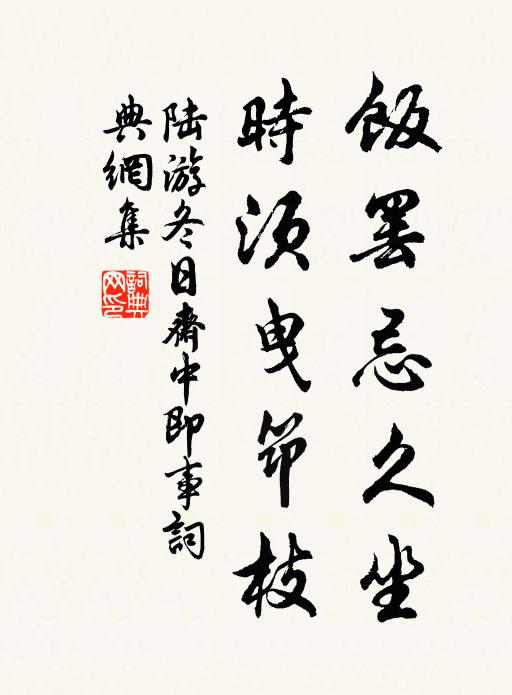 飯罷忌久坐
時須曳笻枝
陆游冬日齋中即事詞
典網集
詞典網印